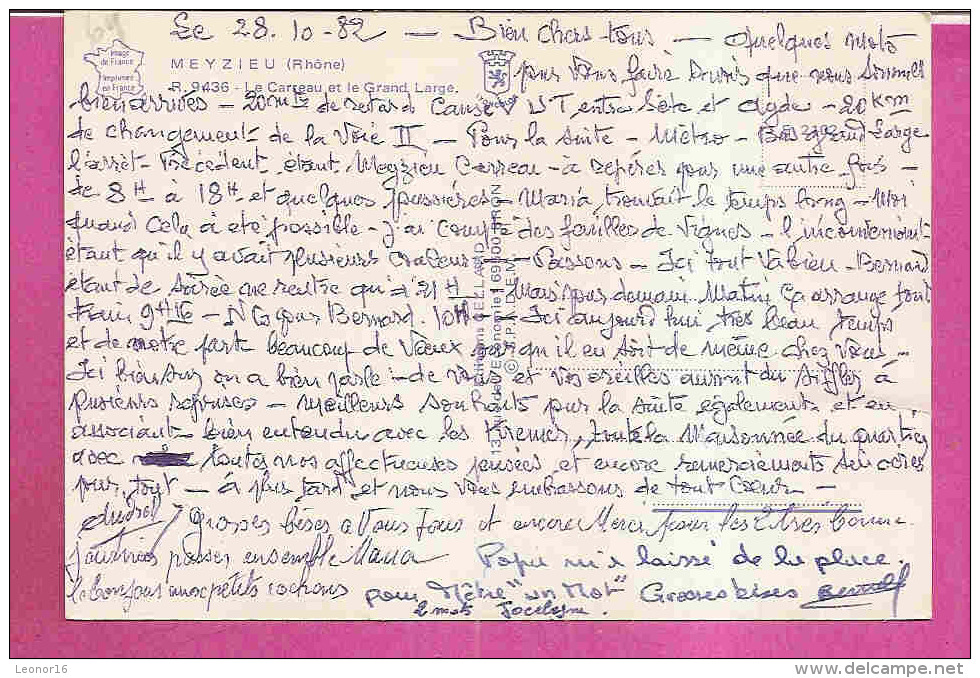 Le 28.10-82 — Bien chers tous — Quelques mots
Image
de France
Imprimée
en France
MEYZIEU (Rhône)
R. 9436 - Le Carreau et le Grand Large.
pour vous faire savoir que nous sommes
bien arrivés - 20 mts de retard cause entre Sète et Agde - 20 km
de changement de la voie II — Pour la suite - Métro - Large
l'arrêt précédent étant Meyzieu Carreau - à repérer pour une autre fois -
de 8H à 18H et quelques poussières - Maria trouvait le temps long - Moi
quand cela a été possible - j'ai compté des feuilles de vignes - l'inconvénient
étant qu'il y avait plusieurs couleurs - Passons - Ici tout va bien - Bernard
étant de soirée ne rentre qu'à 21H - Mais pour demain matin ça arrange tout
train 9H15 - pour Bernard. 10H - Ici aujourd'hui très beau temps
et de notre part beaucoup de voeux pour qu'il en soit de même chez vous -
Ici bien sur on a bien parlé de vous et vos oreilles auront du siffler à
plusieurs reprises - meilleurs souhaits pour la suite également et en
associant bien entendu avec les toute la maisonnée du quartier
avec toutes nos affectueuses pensées et encore remerciements sincères
pour tout - à plus tard et nous vous embrassons de tout coeur -
grosses bises a vous tous et encore merci pour les
journées passées ensemble Maria
le bonjour aux petits cochons
Papi m'a laissé de la place.
pour mettre "un mot" Grosses bises
2 mots Jocelyne.
Leonor16
www.delcampe.net